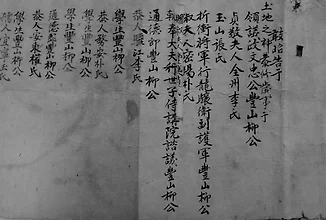 敢昭告于
土地之神恭惟
領議政文忠公豊山柳公
貞敬夫人全州李氏
玉山張氏
折衝將軍行龍驤衛副護軍豊山柳公
淑夫人密陽朴氏
朝奉大夫行世子侍講院諮議豊山柳公
通德郎豊山柳公
恭人驪江李氏
學生豊山柳公
恭人務安朴氏
學生豊山柳公
通德郎豊山柳公
恭人安東權氏
學生豊山柳公